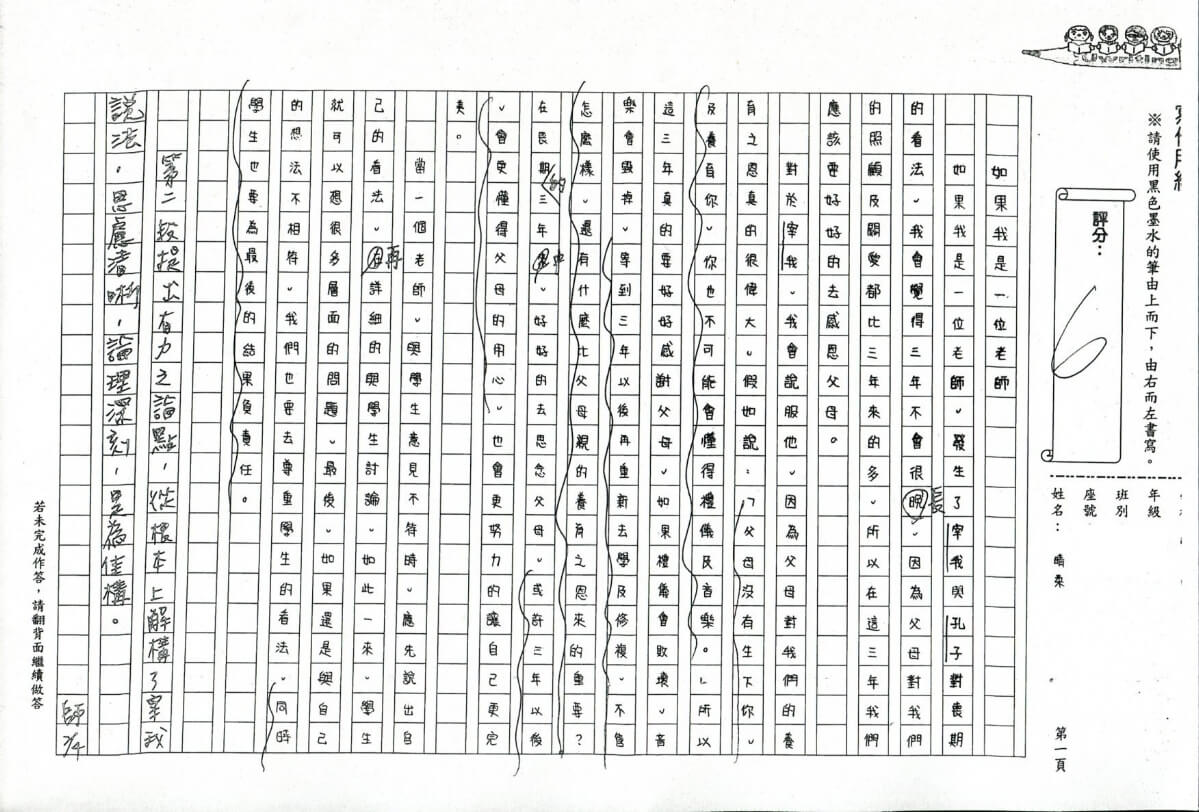 ※請使用黑色墨水的筆由上而下，由右而左書寫。
評分：
6
年級
班別
座號
姓名：晴桑
第一頁
如果我是一位老師
如果我是一位老師，發生了宰我與孔子對喪期
的看法，我會覺得三年不會很晚長，因為父母對我們
的照顧及關愛都比三年來的多，所以在這三年我們
應該要好好的去感恩父母。
對於宰我，我會說服他，因為父母對我們的養
育之恩真的很偉大，假如說：「父母沒有生下你，
及養育你，你也不可能會懂得禮儀及音樂。」所以
這三年真的要好好感謝父母，如果禮儀會敗壞，音
樂會毀掉，等到三年以後再重新去學及修複，不管
怎麼樣，還有什麼比父母親的養育之恩來的重要？
在喪期的三年中，好好的去思念父母，或許三年以後
，會更懂得父母的用心，也會更努力的讓自己更完
美。
當一個老師，與學生意見不符時，應先說出自
己的看法，再詳細的與學生討論，如此一來，學生
就可以想很多層面的問題，最後，如果還是與自己
的想法不相符，我們也要去尊重學生的看法，同時
學生也要為最後的結果負責任。
第二段提出有力之論點，從根本上解構了宰我
說法。思慮清晰，論理深刻，是為佳構。
師 2/4
若未完成作答，請翻背面繼續做答